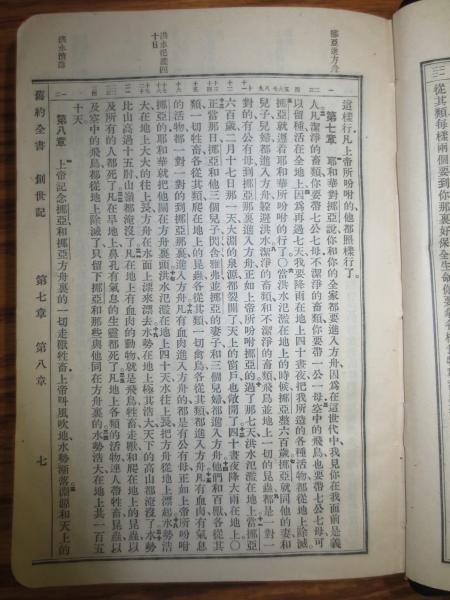 挪亞進方舟
洪水氾濫四十日
洪水漸落
這樣行凡上帝所吩咐的他都照樣行了
第七章 耶和華對挪亞說你和你的全家都要進入方舟因為在這世代中我見你在我面前是義
人凡潔淨的畜類你要帶七公七母不潔淨的畜類你要帶一公一母空中的飛鳥也要帶七公七母可
以留種活在全地上因為再過七天我要降雨在地上四十晝夜把我所造的各種活物都從地上除滅
挪亞就遵着耶和華所吩咐的行了〇當洪水氾濫在地上的時候挪亞整六百歲挪亞就同他的妻和
兒子兒婦都進入方舟躱避洪水潔淨的畜類和不潔淨的畜類飛鳥並地上一切的昆蟲都是一對一
對的有公有母到挪亞那裏進入方舟正如上帝所吩咐挪亞的過了那七天洪水氾濫在地上當挪亞
六百歲二月十七日那一天大淵的泉源都裂開了天上的窗戶也敞開了四十晝夜降大雨在地上〇
正當那日挪亞和他三個兒子閃含雅弗並挪亞的妻子和三個兒婦都進入方舟他們和百獸各從其
類一切牲畜各從其類爬在地上的昆蟲各從其類一切禽鳥各從其類都進入方舟凡有血肉有氣息
的活物都一對一對的到挪亞那裏進入方舟凡有血肉進入方舟的都是有公有母正如上帝所吩咐
挪亞的耶和華就把他關在方舟裏頭洪水氾濫在地上四十天水往上長把方舟從地上漂起水勢浩
大在地上大大的往上長方舟在水面上漂來漂去水勢在地上極其浩大天下的高山都淹沒了水勢
比山高過十五肘山嶺都淹沒了凡在地上有血肉的動物就是飛鳥牲畜走獸和爬在地上的昆蟲以
及所有的人都死了凡在旱地上鼻孔有氣息的生靈都死了凡地上各類的活物連人帶牲畜昆蟲以
及空中的飛鳥都從地上除滅了只留下挪亞和那些與他同在方舟裏的水勢浩大在地上共一百五
十天
第八章 上帝記念挪亞和挪亞方舟裏的一切走獸牲畜上帝叫風吹地水勢漸落淵源和天上的
舊約全書 創世記 第七章 第八章 七